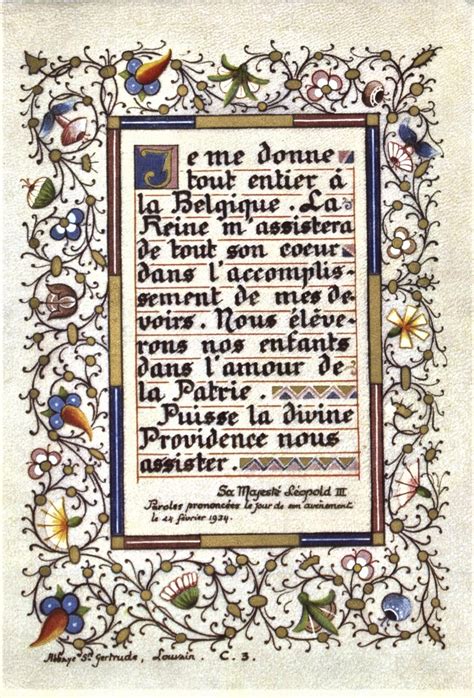 Je me donne
tout entier à
la Belgique. La
Reine m'assistera
de tout son coeur
dans l'accomplis-
sement de mes de-
voirs. Nous élève-
rons nos enfants
dans l'amour de
la Patrie.
Puisse la divine
Providence nous
assister.
Sa Majesté Léopold III
Paroles prononcées le jour de son avènement
le 24 février 1934.
Abbaye Ste Gertrude, Louvain. C. 3.